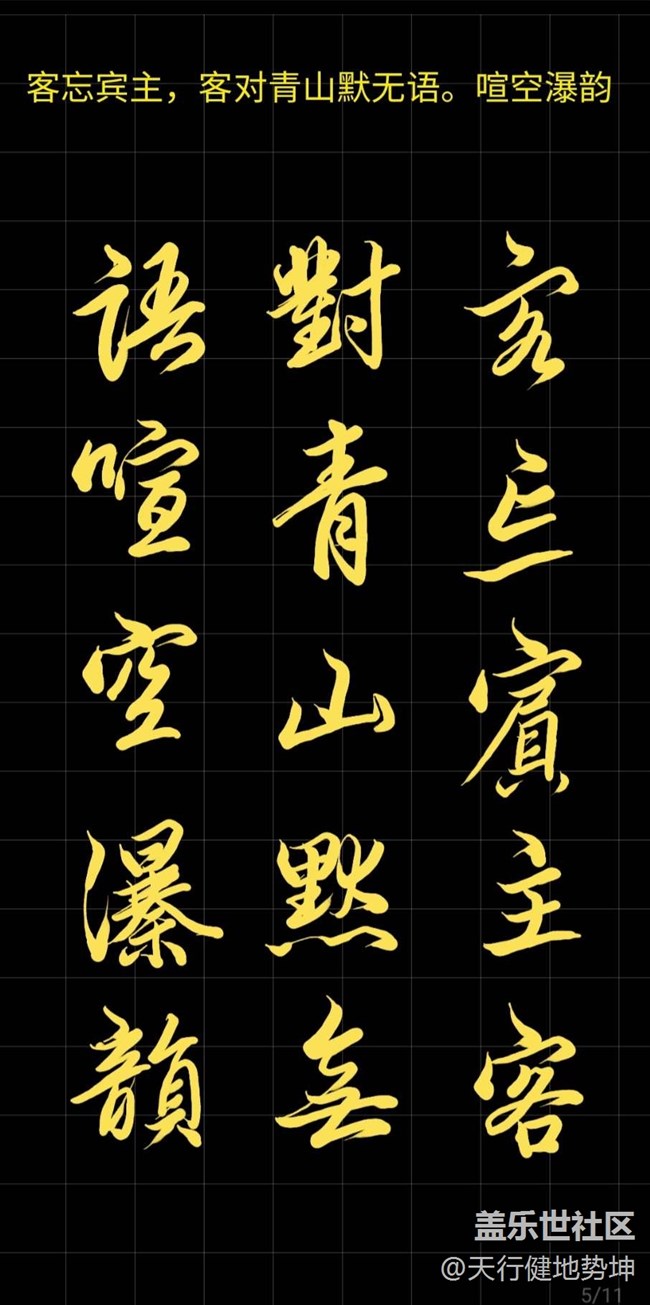 客忘宾主，客对青山默无语。喧空瀑韵
客忘賓主客
對青山默無
語喧空瀑韻
盖乐世社区
@天行健地势坤
5/11